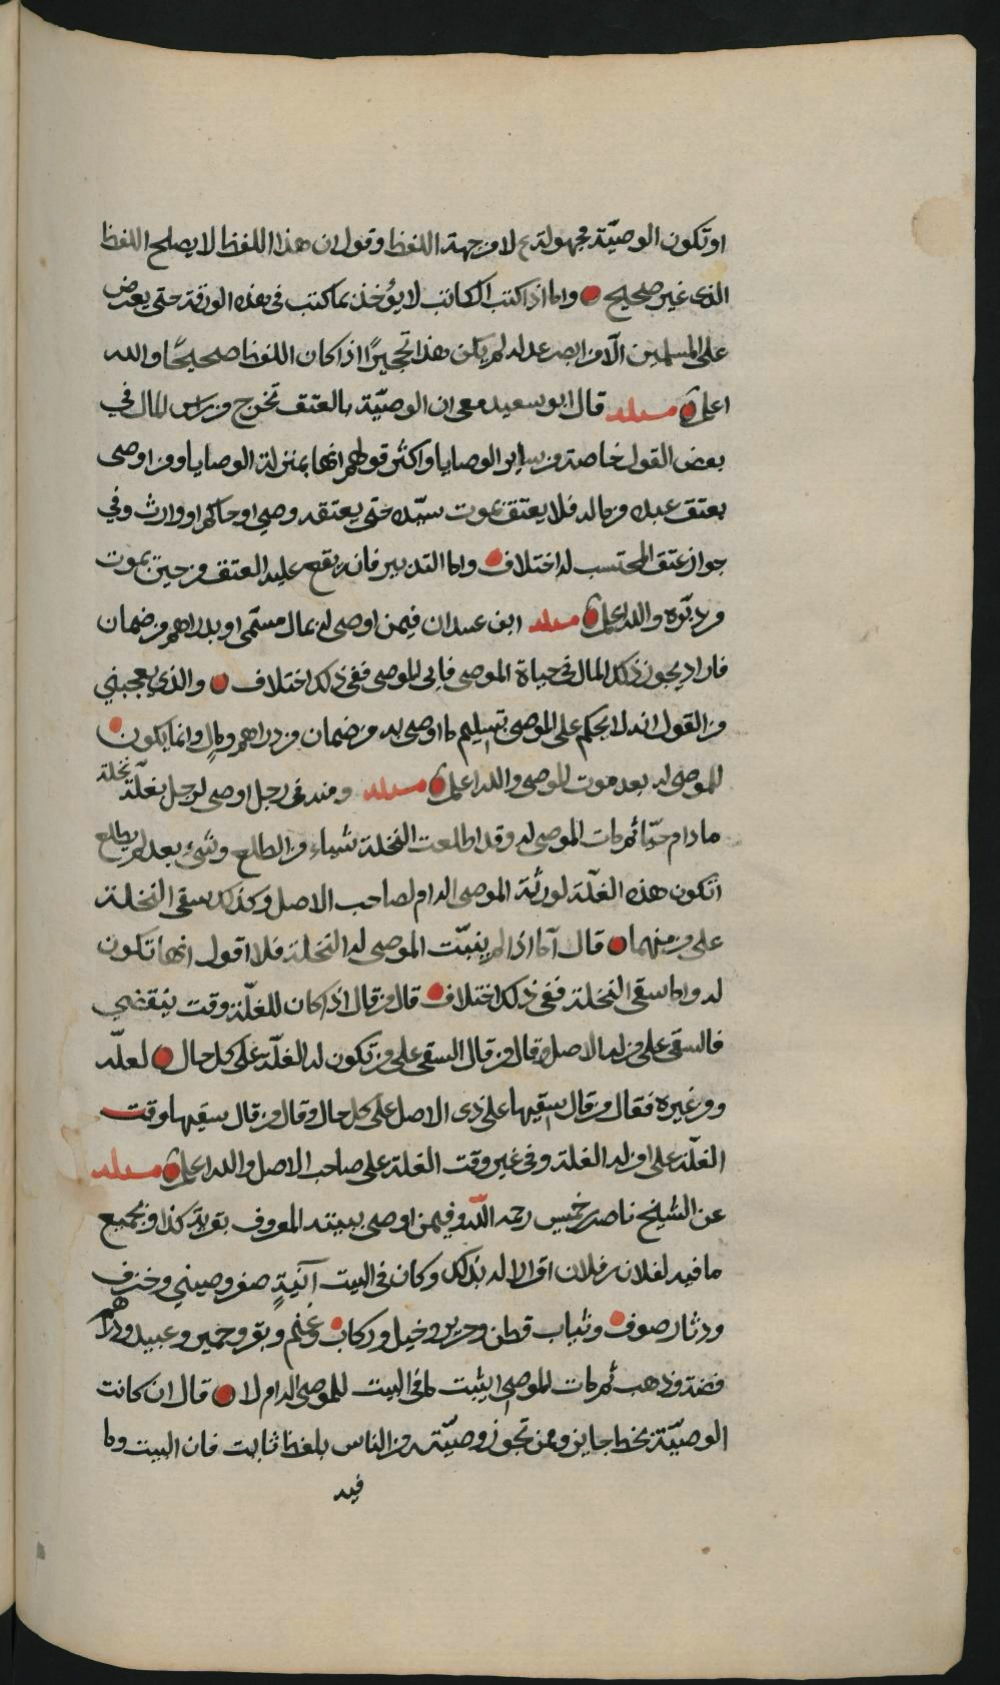 او تكون الوصيّة مجهولة لا من جهة اللفظ وقول ان هذا اللفظ لا يصلح اللفظ
الذي غير صحيح واما اذا كتب الكاتب لا يؤخذ بما كتب في هذه الورقة حتى يعرض
على المسلمين الّا من ابصر عدله لم يكن هذا تحجيرًا اذا كان اللفظ صحيحًا والله
اعلم مسئلة قال ابو سعيد معي ان الوصيّة بالعتق تخرج من راس المال في
بعض القول خاصة من ساير الوصايا واكثر قولهم انها بمنزلة الوصايا ومن اوصى
بعتق عبده من ماله فلا يعتق بموت سيّده حتى يعتقه وصي او حاكم او وارث وفي
جواز عتق المحتسب له اختلاف واما التدبير فانه يقع عليه العتق من حين يموت
من دبّره والله اعلم مسئلة ابن عبيدان فيمن اوصى له بمال مسمّى او بدراهم من ضمان
فاراد يحوز ذلك المال في حياة الموصي فابى الموصي ففي ذلك اختلاف والذي يعجبني
من القول انه لا يحكم على الموصي بتسليم ما اوصى به من ضمان من دراهم ومال وانما يكون
للموصى له بعد موت الموصي والله اعلم مسئلة ومنه في رجل اوصى لرجل بغلّة نخلة
ما دام حيّا ثم مات الموصى له وقد اطلعت النخلة شياء من الطلع وشيء بعد لم يطلع
اتكون هذه الغلّة لورثة الموصى له ام لصاحب الاصل وكذلك سقي النخلة
على من منهما قال امّا اذا لم ينبّت الموصى له النخلة فلا اقول انها تكون
له واما سقي النخلة ففي ذلك اختلاف قال من قال اذا كان للغلّة وقت ينقضي
فالسقي على من له الاصل وقال من قال السقي على من تكون له الغلّة على كل حال لعلّه
ومن غيره فقال من قال سقيها على ذى الاصل على كل حال وقال من قال سقيها وقت
الغلّة على من له الغلة وفي غير وقت الغلة على صاحب الاصل والله اعلم مسئلة
عن الشيخ ناصر بن خميس رحمه الله وفيمن اوصى ببيته المعروف بقرية كذا وبجميع
ما فيه لفلان بن فلان اقرارا له بذلك وكان في البيت آنيةٍ صفر وصيني وخزف
ودثار صوف وثياب قطن وحرير وخيل وركاب وغنم وبقر وحمير وعبيد ودراهم
فضة وذهب ثم مات الموصي ايثبت ما في البيت للموصى له ام لا قال ان كانت
الوصيّة بخط جايز وممن تجوز وصيّته من الناس بلفظ ثابت فان البيت وما
فيه